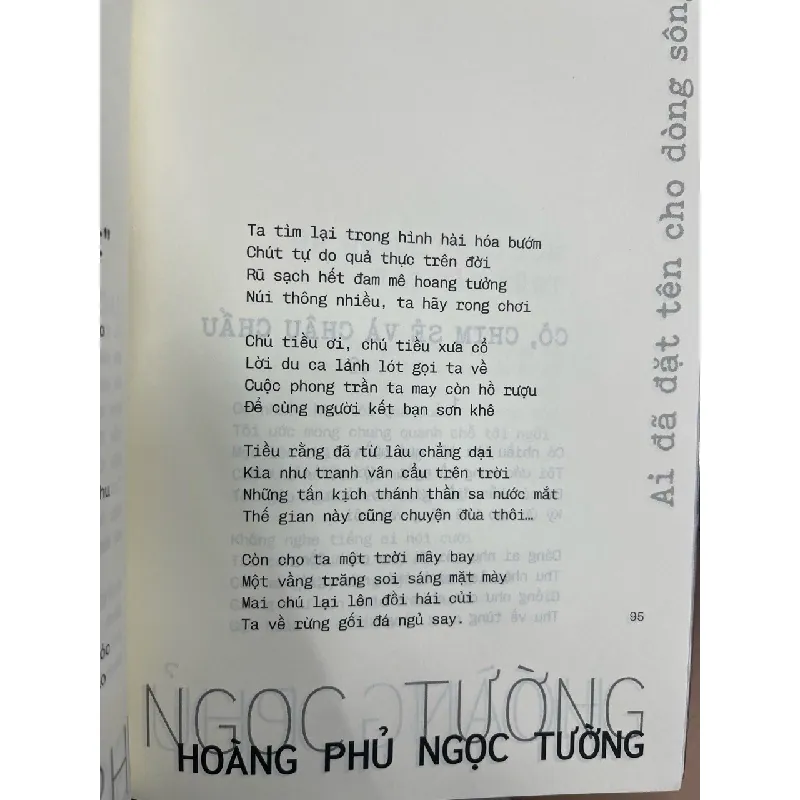 Ta tìm lại trong hình hài hóa bướm
Chút tự do quả thực trên đời
Rũ sạch hết đam mê hoang tưởng
Núi thông nhiều, ta hãy rong chơi
Chú tiều ơi, chú tiều xưa cổ
Lời du ca lảnh lót gọi ta về
Cuộc phong trần ta may còn hồ rượu
Để cùng người kết bạn sơn khê
Tiều rằng đã từ lâu chẳng dại
Kìa như tranh vân cẩu trên trời
Những tấn kịch thánh thần sa nước mắt
Thế gian này cũng chuyện đùa thôi…
Còn cho ta một trời mây bay
Một vầng trăng soi sáng mặt mày
Mai chú lại lên đồi hái củi
Ta về rừng gối đá ngủ say.
95
Ai đã đặt tên cho dòng sông
NGỌC TƯỜNG
HOÀNG PHỦ NGỌC TƯỜNG